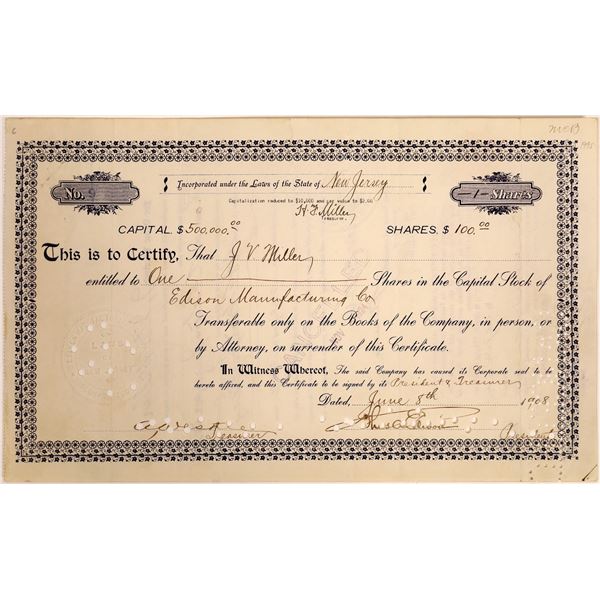 No. 9
Incorporated under the Laws of the State of New Jersey
-1- Shares
Capitalization reduced to $10,000 and par value to $2.00
H F Miller
TREASURER.
CAPITAL $500,000.00 SHARES $100.00
This is to Certify, That J V Miller
entitled to One Shares in the Capital Stock of
Edison Manufacturing Co
Transferable only on the Books of the Company, in person, or
by Attorney, on surrender of this Certificate.
In Witness Whereof, The said Company has caused its Corporate seal to be
hereto affixed, and this Certificate to be signed by its President & Treasurer
Dated, June 8th 1908
Treasurer
Thos A Edison
President